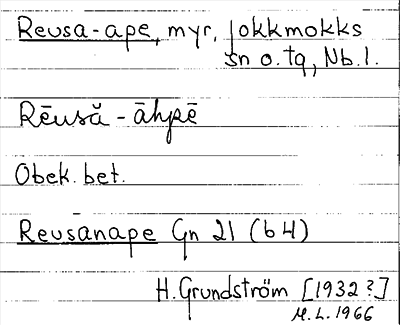 Reusa-ape, myr, Jokkmokks
sn o. tq, Nb. l.
Rēusă - āhpē
Obek. bet.
Reusanape Gn 21 (b 4)
H. Grundström [1932?]
M. L. 1966